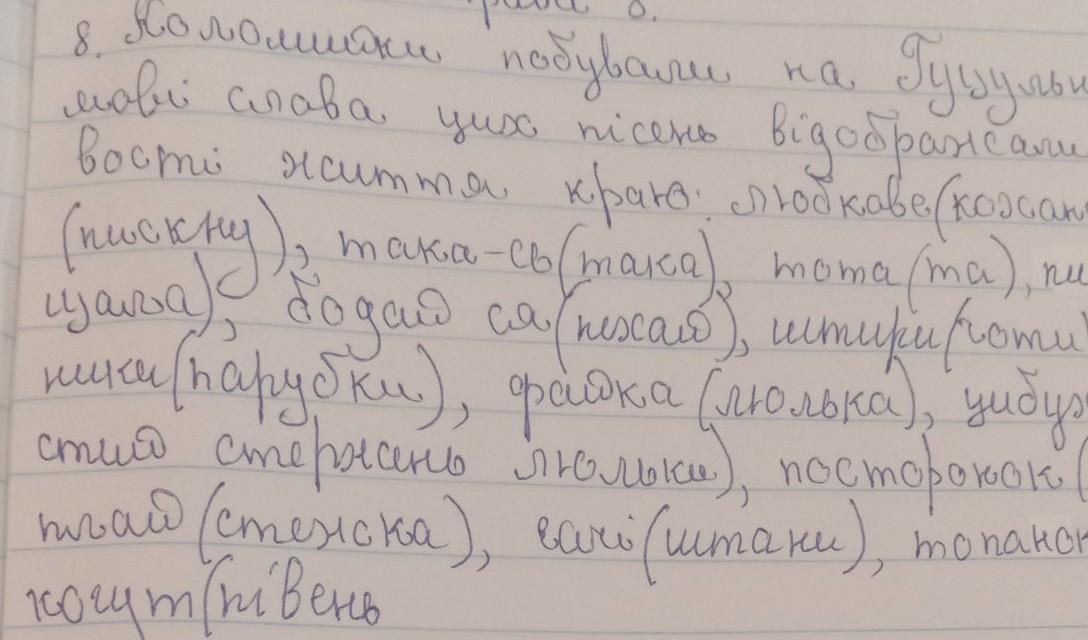 8.
8. Коломийки побували на Гуцульщ
мові слова цих пісень відображали
вості життя краю: любкаве (кожан
(пискну), така-сь (така), тота (та), пи
щала), бодай ся (нехай), штири (чоти
ники (парубки), файка (люлька), цибух
стий стержень люльки), посторонок (
плай (стежка), гачі (штани), топанок
когут (півень